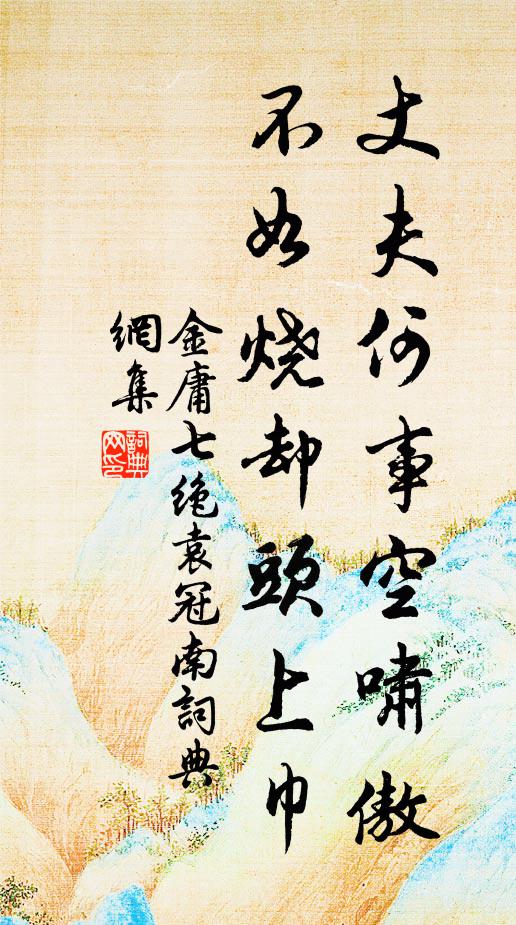 丈夫何事空啸傲
不如烧却頭上巾
金庸七绝袁冠南詞典
網集
詞典網印